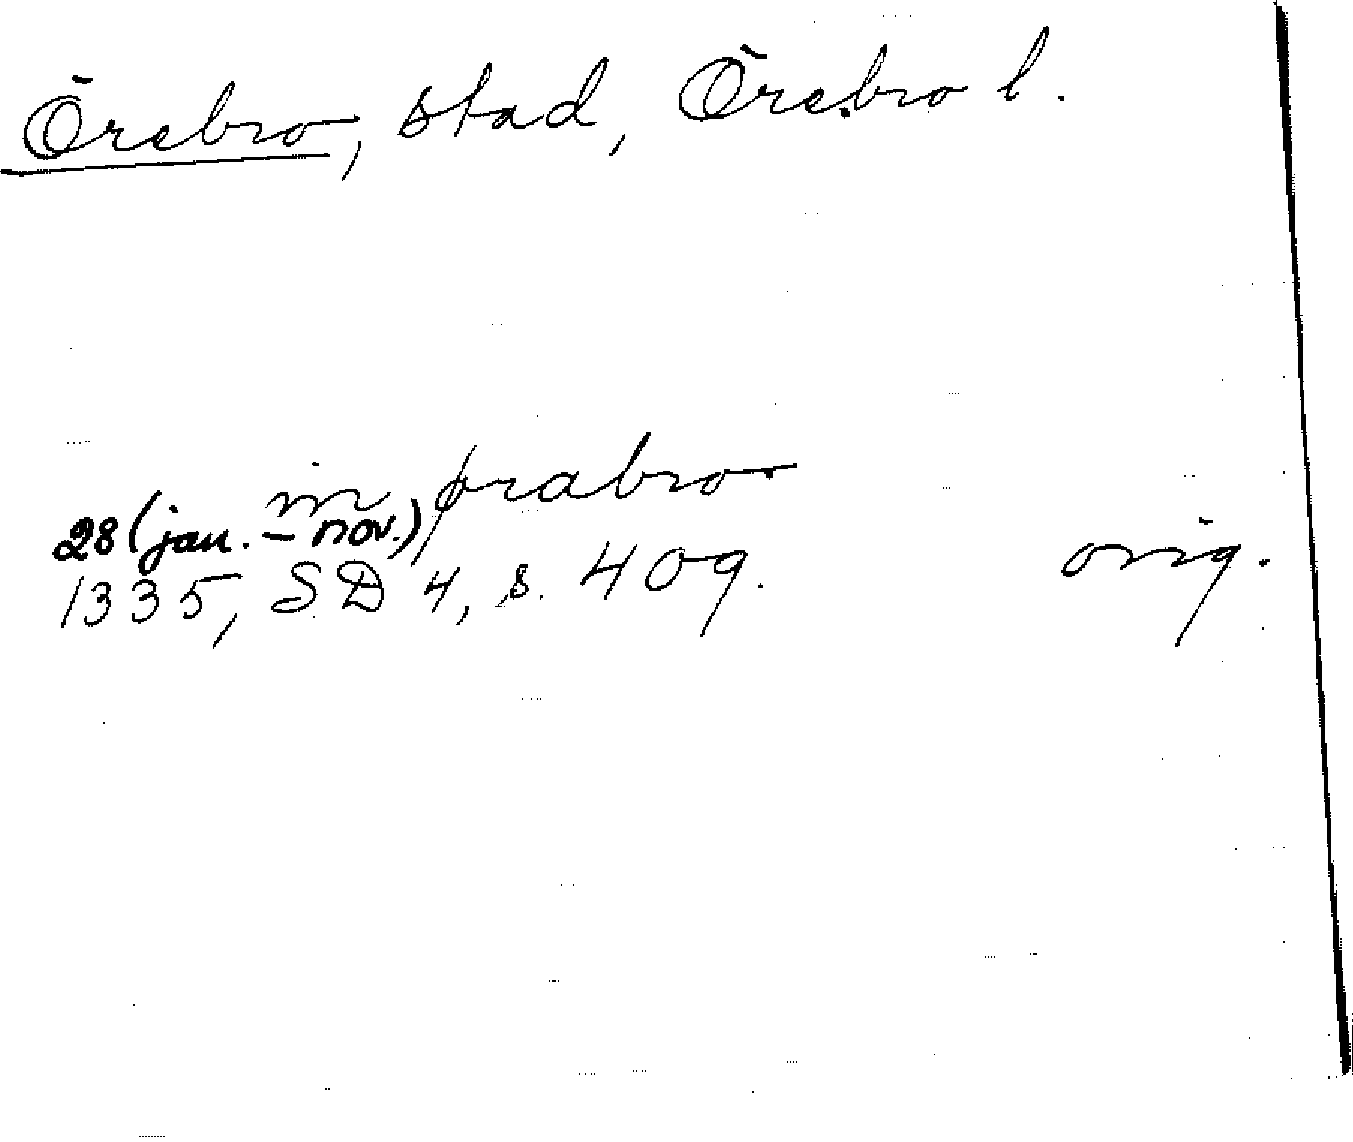 Örebro, stad, Örebro l.
in ørabro
28 (jan. – nov.)
1335, SD 4, s. 409. orig.